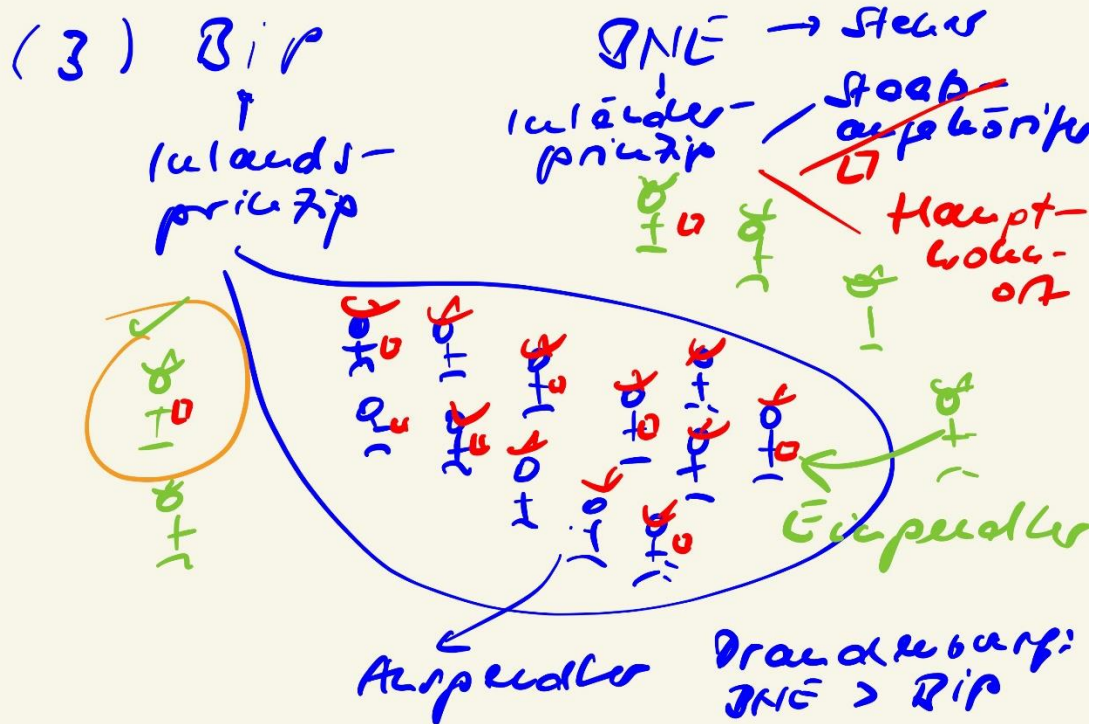 (3) BiP
BNE → Steuer
Inlands-
prinzip
Inländer-
prinzip
Staats-
angehöriger
Haupt-
wohn-
ort
Einpendler
Auspendler
Brandenburg:
BNE > BiP